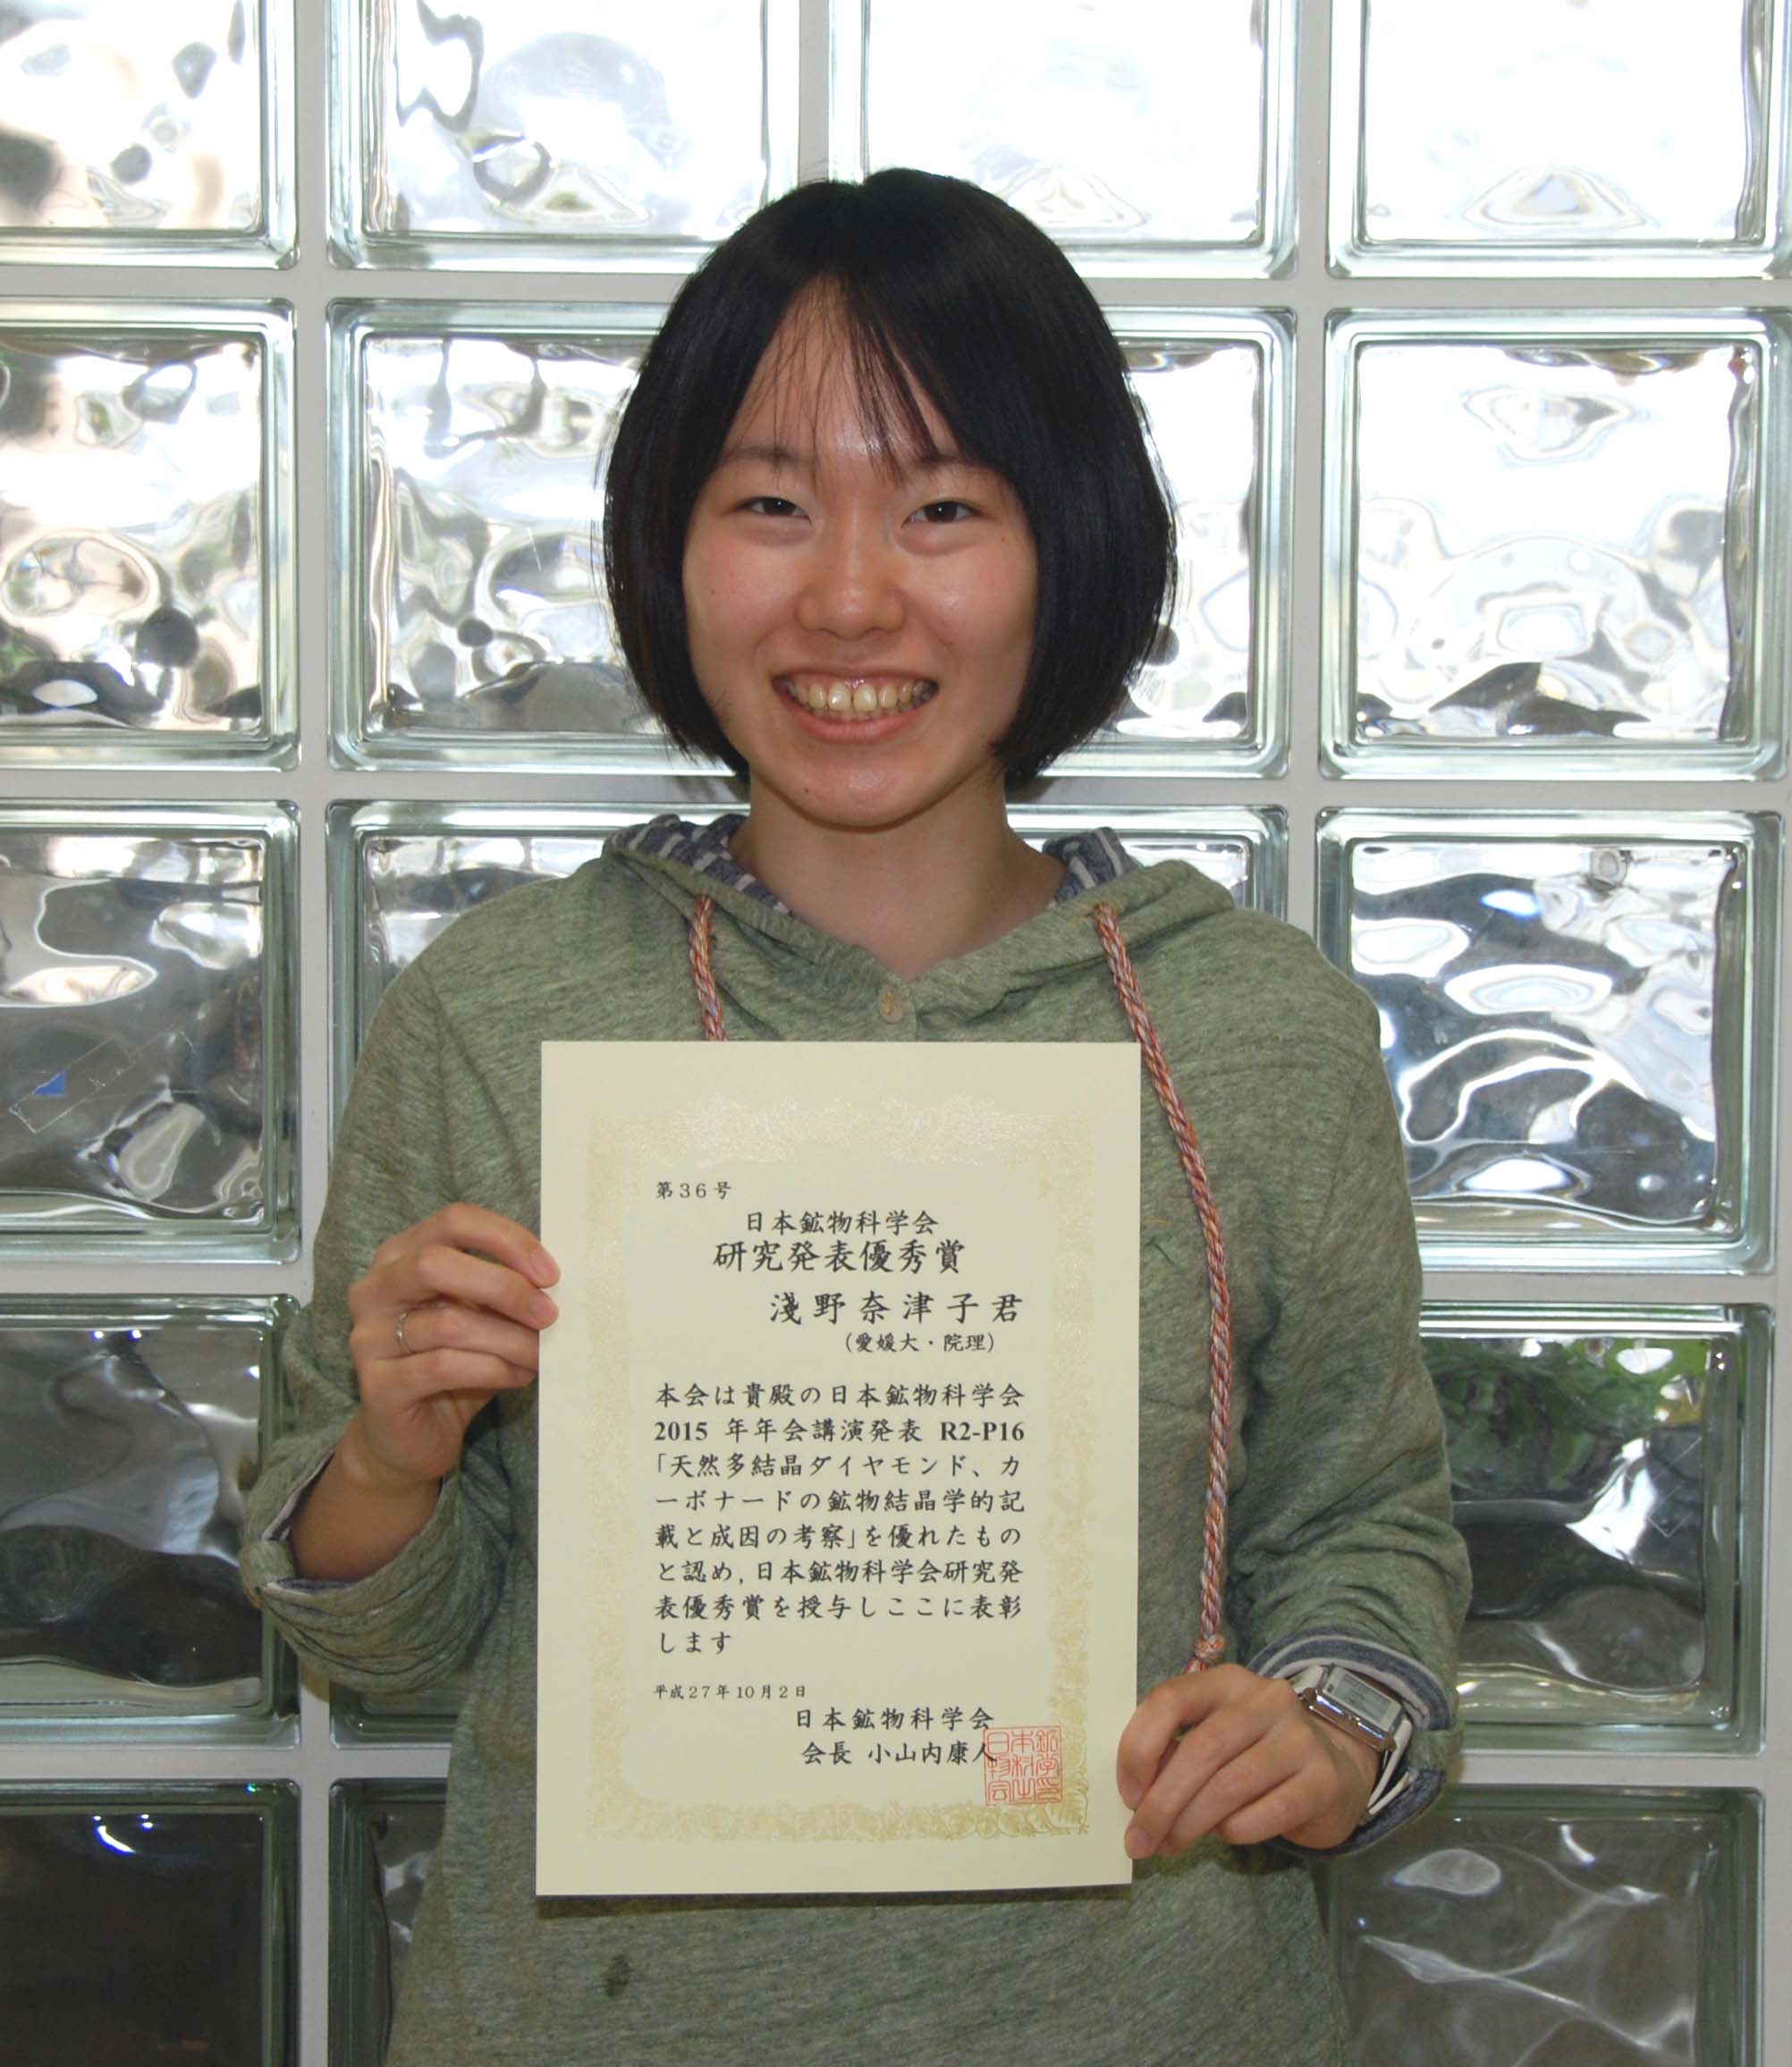 第36号
日本鉱物科学会
研究発表優秀賞
淺野奈津子君
（愛媛大・院理）
本会は貴殿の日本鉱物科学会
2015 年年会講演発表 R2-P16
「天然多結晶ダイヤモンド、カ
ーボナードの鉱物結晶学的記
載と成因の考察」を優れたもの
と認め,日本鉱物科学会研究発
表優秀賞を授与しここに表彰
します
平成27年10月2日
日本鉱物科学会
会長 小山内康人